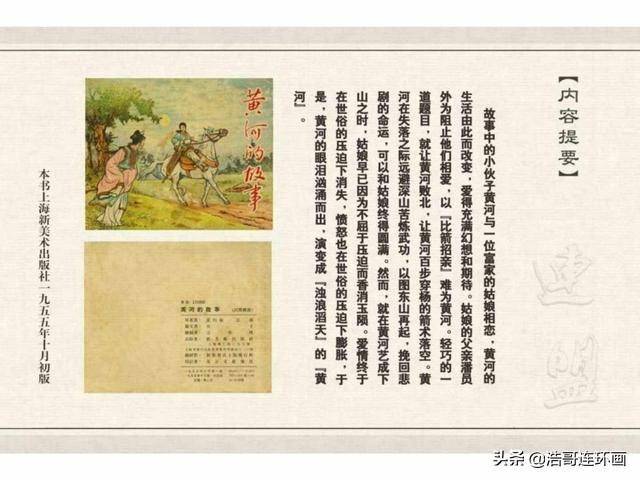 【内容提要】
故事中的小伙子黄河与一位富家的姑娘相恋，黄河的
生活由此而改变，爱得充满幻想和期待。姑娘的父亲潘员
外为阻止他们相爱，以『比箭招亲』难为黄河。轻巧的一
道题目，就让黄河败北，让黄河百步穿杨的箭术落空。黄
河在失落之际远避深山苦炼武功，以图东山再起，挽回悲
剧的命运，可以和姑娘终得圆满。然而，就在黄河艺成下
山之时，姑娘早已因为不屈于压迫而香消玉陨。爱情终于
在世俗的压迫下消失，愤怒也在世俗的压迫下膨胀，于
是，黄河的眼泪汹涌而出，演变成『浊浪滔天』的『黄
河』。
黄河的故事
黄河的故事
本书上海新美术出版社一九五五年十月初版
连盟
头条@浩哥连环画